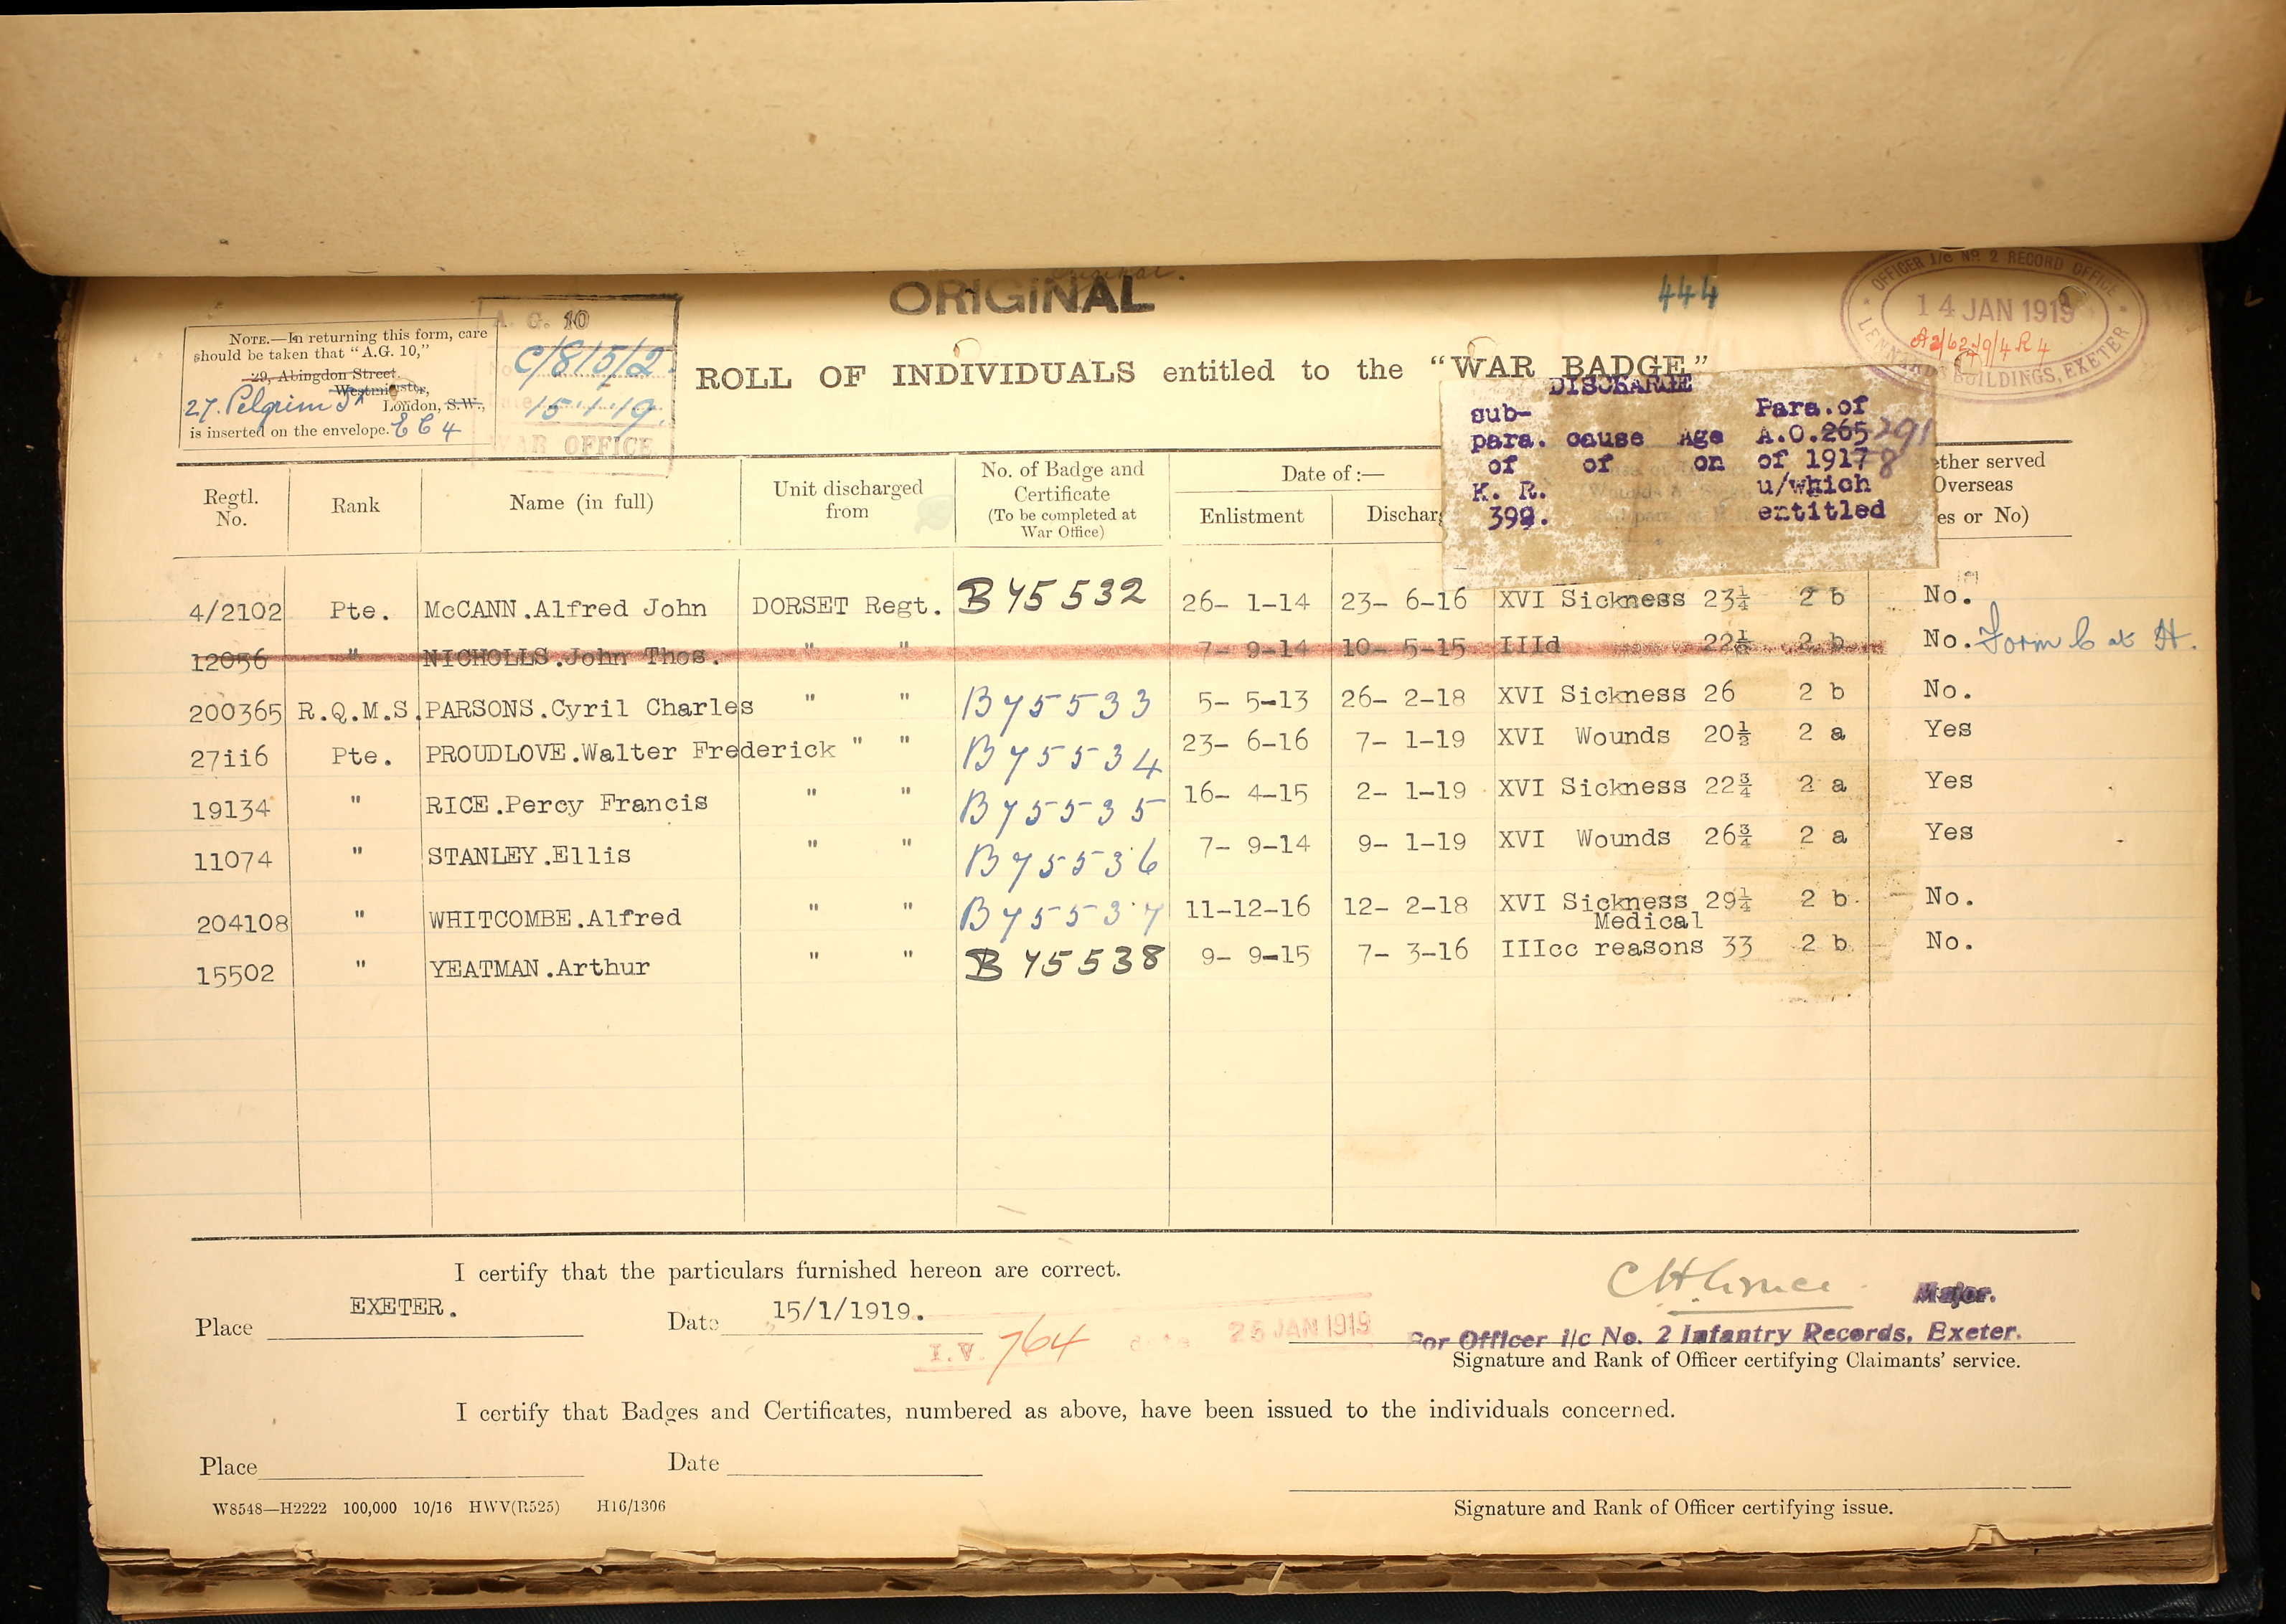 ORIGINAL
444
OFFICER I/c No. 2 RECORD OFFICE
14 JAN 1919
LENNARDS BUILDINGS, EXETER
NOTE.—In returning this form, care
should be taken that "A.G. 10,"
29, Abingdon Street,
Westminster,
27. Pelgrim St London, S.W.,
is inserted on the envelope. E C 4
A. G. 10
No. C/815/2.
Date 15.1.19.
WAR OFFICE
ROLL OF INDIVIDUALS entitled to the "WAR BADGE"
DISCHARGE
sub- Para.of
para. cause Age A.O.265 291
of of on of 1917 8
K. R. u/which
392. entitled
Regtl. No. Rank Name (in full) Unit discharged from No. of Badge and Certificate (To be completed at War Office) Date of :— Enlistment Discharg ether served Overseas es or No)
4/2102 Pte. McCANN.Alfred John DORSET Regt. B 45532 26- 1-14 23- 6-16 XVI Sickness 23¼ 2 b No.
12056 " NICHOLLS.John Thos. " " 7- 9-14 10- 5-15 IIId 22½ 2 b No. Form C at H.
200365 R.Q.M.S. PARSONS.Cyril Charles " " B45533 5- 5-13 26- 2-18 XVI Sickness 26 2 b No.
27ii6 Pte. PROUDLOVE.Walter Frederick " " B45534 23- 6-16 7- 1-19 XVI Wounds 20½ 2 a Yes
19134 " RICE.Percy Francis " " B45535 16- 4-15 2- 1-19 XVI Sickness 22¾ 2 a Yes
11074 " STANLEY.Ellis " " B45536 7- 9-14 9- 1-19 XVI Wounds 26¾ 2 a Yes
204108 " WHITCOMBE.Alfred " " B45537 11-12-16 12- 2-18 XVI Sickness 29¼ 2 b No.
Medical
15502 " YEATMAN.Arthur " " B 45538 9- 9-15 7- 3-16 IIIcc reasons 33 2 b No.
I certify that the particulars furnished hereon are correct.
Major.
Place EXETER. Date 15/1/1919.
I.V. 764 date 25 JAN 1919
For Officer i/c No. 2 Infantry Records, Exeter.
Signature and Rank of Officer certifying Claimants' service.
I certify that Badges and Certificates, numbered as above, have been issued to the individuals concerned.
Place Date
W8548—H2222 100,000 10/16 HWV(R525) H16/1306
Signature and Rank of Officer certifying issue.